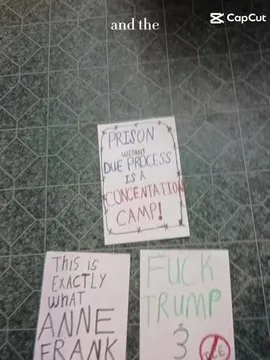 and the
CapCut
PRISON
WITHOUT
DUE PROCESS
IS A
CONCENTATION
CAMP!
THIS IS
EXACTLY
WHAT
ANNE
FRANK
FUCK
TRUMP
&
ICE